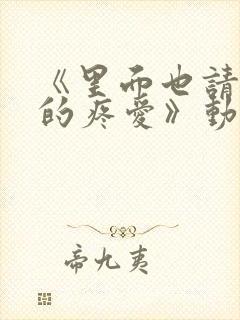 《里而也請
的疼愛》動
帝九夷